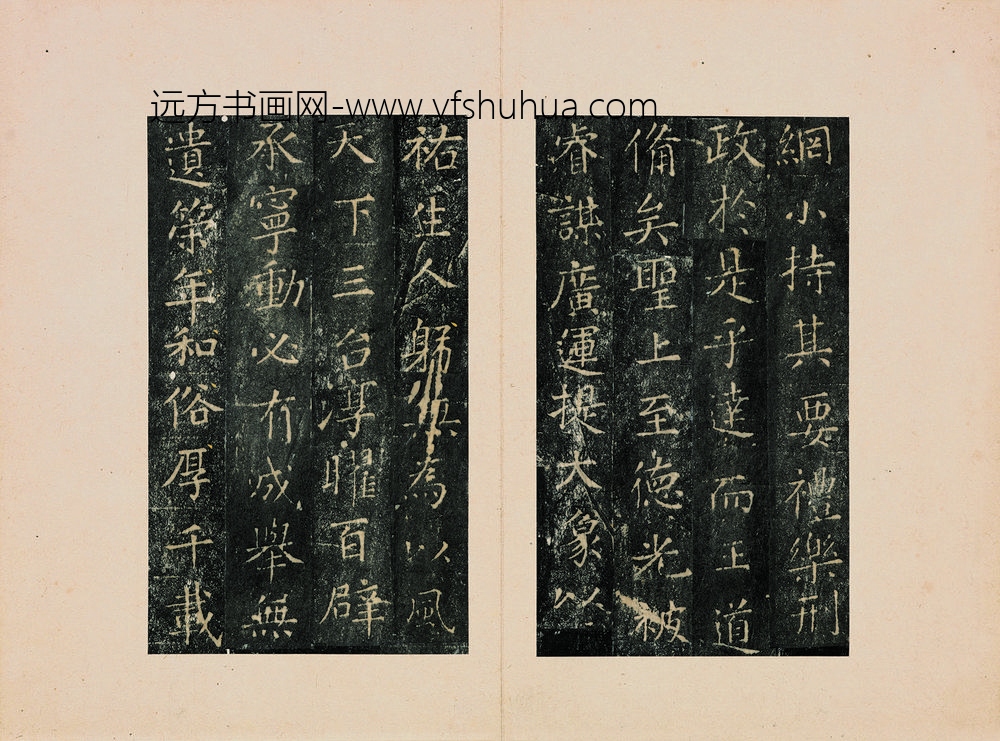 远方书画网-www.yfshuhua.com
網小持其要禮樂刑
政於是乎達而王道
俻矣聖上至德光被
睿謀廣運提大象以
祐生人躬無為以風
天下三台淳曜百辟
承寧動必有成舉無
遺策年和俗厚千載